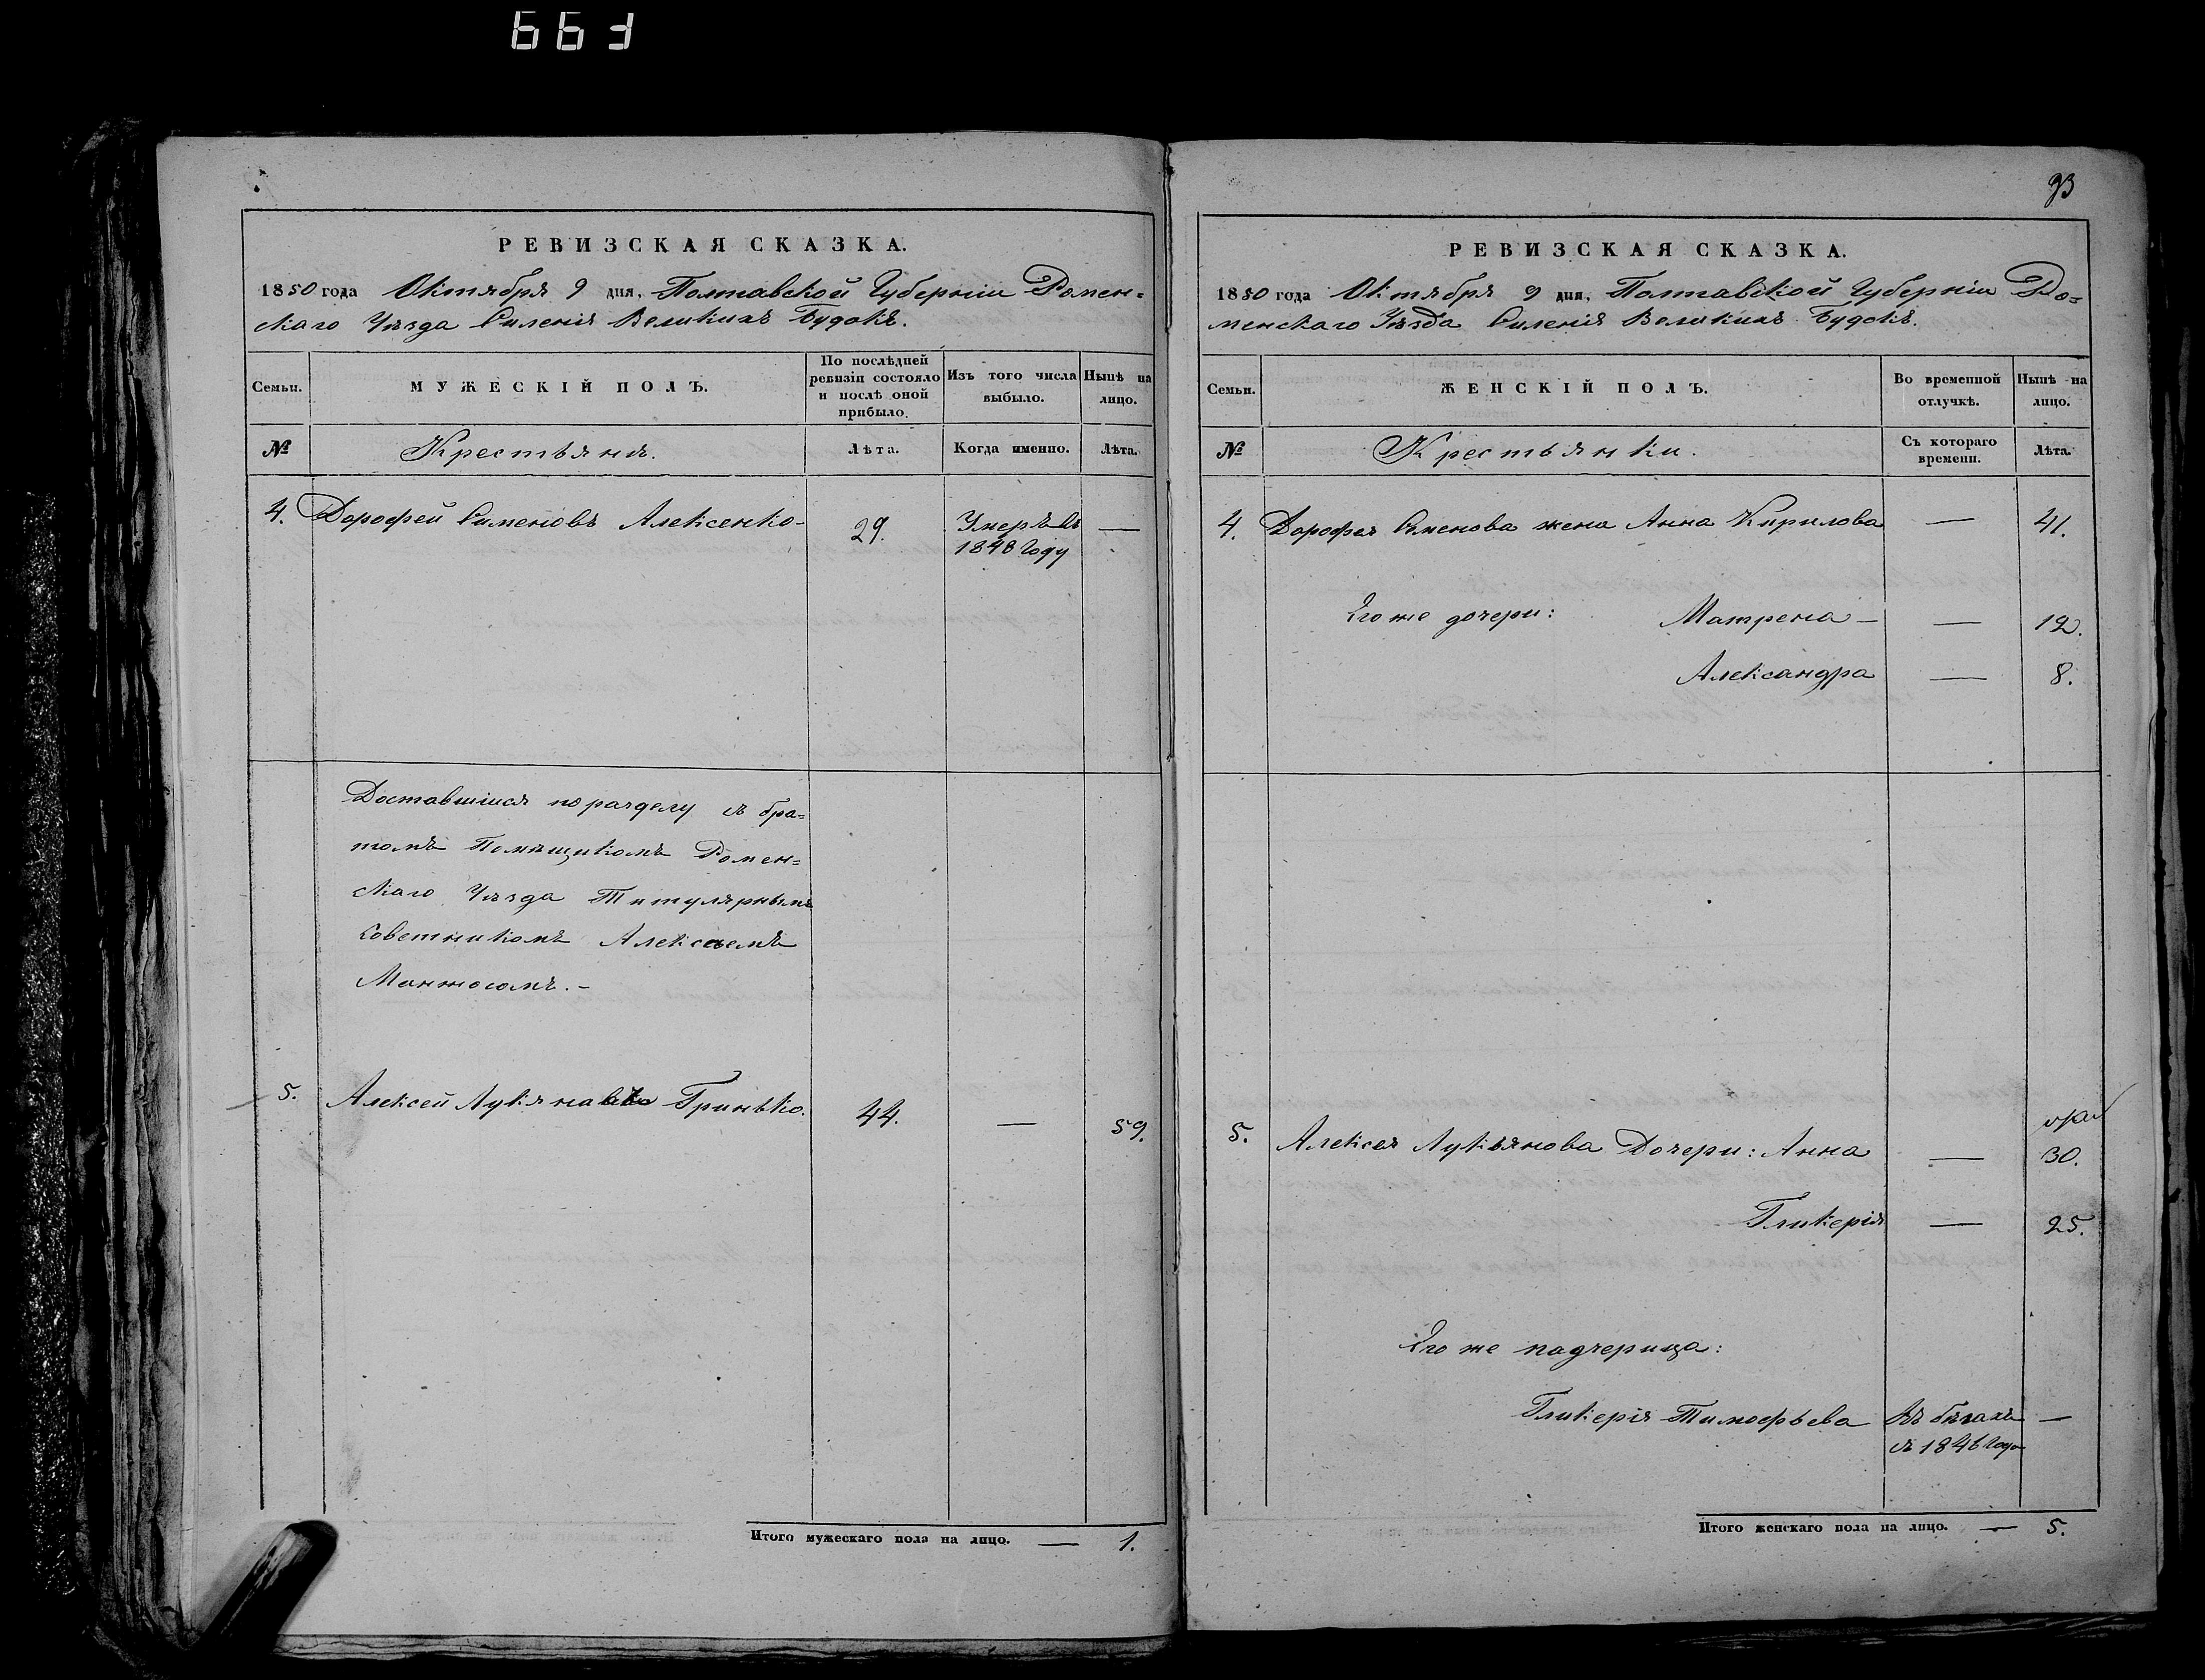 663
РЕВИЗСКАЯ СКАЗКА.
1850 года Октября 9 дня, Полтавской Губерніи Ромен=
скаго Уѣзда Силенія Великихъ Будокъ.
Семьи.
МУЖЕСКІЙ ПОЛЪ.
По послѣдней ревизіи состояло и послѣ оной прибыло.
Изъ того числа выбыло.
Нынѣ на лицо.
№
Крестьяня.
Лѣта.
Когда именно.
Лѣта.
4. Дорофей Сименовъ Алексенко- 29. Умеръ въ —
1848 году
Доставшіися по разделу съ бра=
томъ Помѣщикомъ Ромен=
скаго Уѣзда Титулярнымъ
Советникомъ Алексеемъ
Манжосомъ.-
5. Алексей Лукянавъ Гринько. 44. — 59.
Итого мужескаго пола на лицо. — 1.
93
РЕВИЗСКАЯ СКАЗКА.
1850 года Октября 9 дня, Полтавской Губерніи Ро=
менскаго Уѣзда Силенія Великихъ Будокъ.
Семьи.
ЖЕНСКІЙ ПОЛЪ.
Во временной отлучкѣ.
Нынѣ на лицо.
№
Крестьянки.
Съ котораго времени.
Лѣта.
4. Дорофея Сименова жена Анна Кирилова — 41.
Его же дочери: Матрена — — 12.
Александра — 8.
5. Алексея Лукьянова Дочери: Анна — 30.
Гликерія — 25.
Его же падчерица:
Гликерія Тимофьева Въ бѣгахъ —
съ 1846 года
Итого женскаго пола на лицо. — 5.